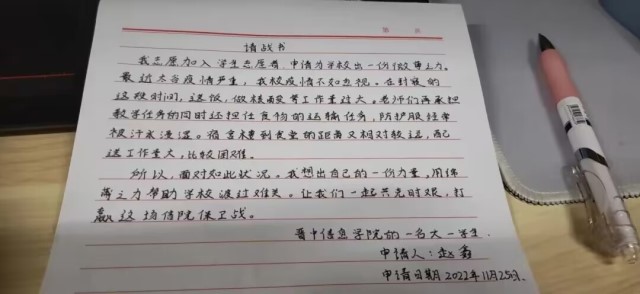 请战书
我志愿加入学生志愿者,申请为学校出一份微薄之力。
最近太谷疫情严重,我校疫情不如忽视。在封寝的
这段时间,送饭,做核酸等工作量过大。老师们再承担
教学任务的同时还担任食物的运输任务,防护服经常
被汗水浸湿。宿舍楼到食堂的距离又相对较远,配
送工作量大,比较困难。
所以,面对如此状况。我想出自己的一份力量,用绵
薄之力帮助学校渡过难关。让我们一起共克时艰,打
赢这场信院保卫战。
晋中信息学院的一名大一学生
申请人:赵鑫
申请日期2022年11月25日.